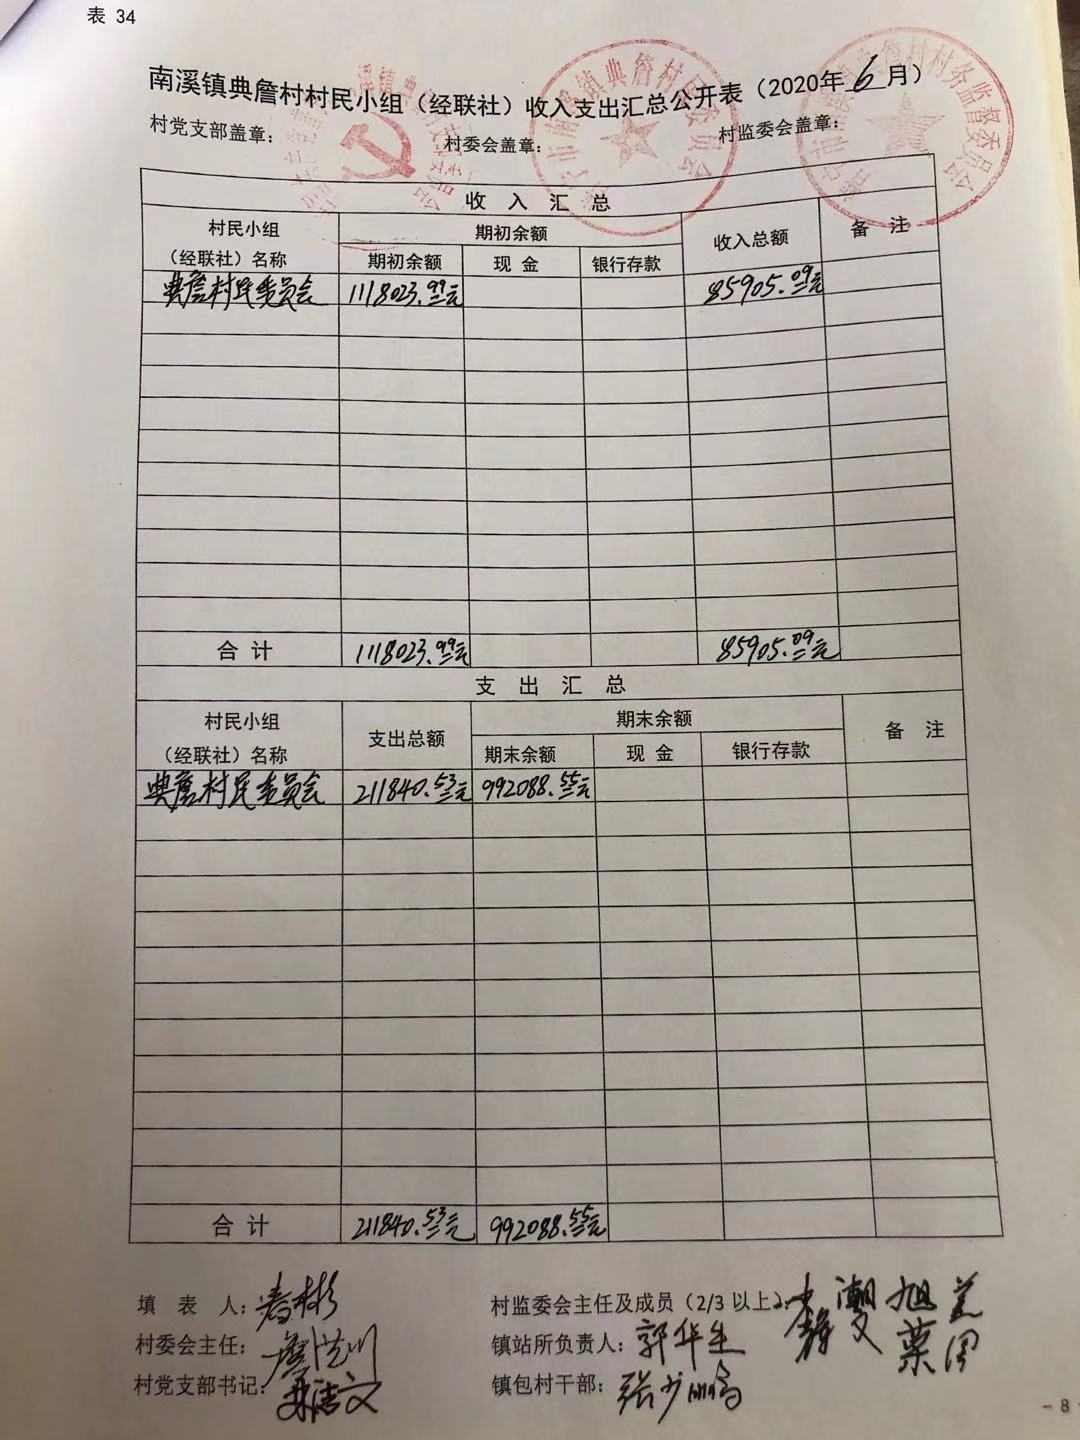 表 34
南溪镇典詹村村民小组（经联社）收入支出汇总公开表（2020年6月）
村党支部盖章： 村委会盖章： 村监委会盖章：
收 入 汇 总
村民小组（经联社）名称 期初余额 收入总额 备 注
期初余额 现 金 银行存款
典詹村民委员会 1118023.99元 85905.09元
合 计 1118023.99元 85905.09元
支 出 汇 总
村民小组（经联社）名称 支出总额 期末余额 备 注
期末余额 现 金 银行存款
典詹村民委员会 211840.53元 992088.55元
合 计 211840.53元 992088.55元
填 表 人： 村监委会主任及成员（2/3 以上）：
村委会主任： 镇站所负责人：郭华生
村党支部书记： 镇包村干部：张少鹏
- 8